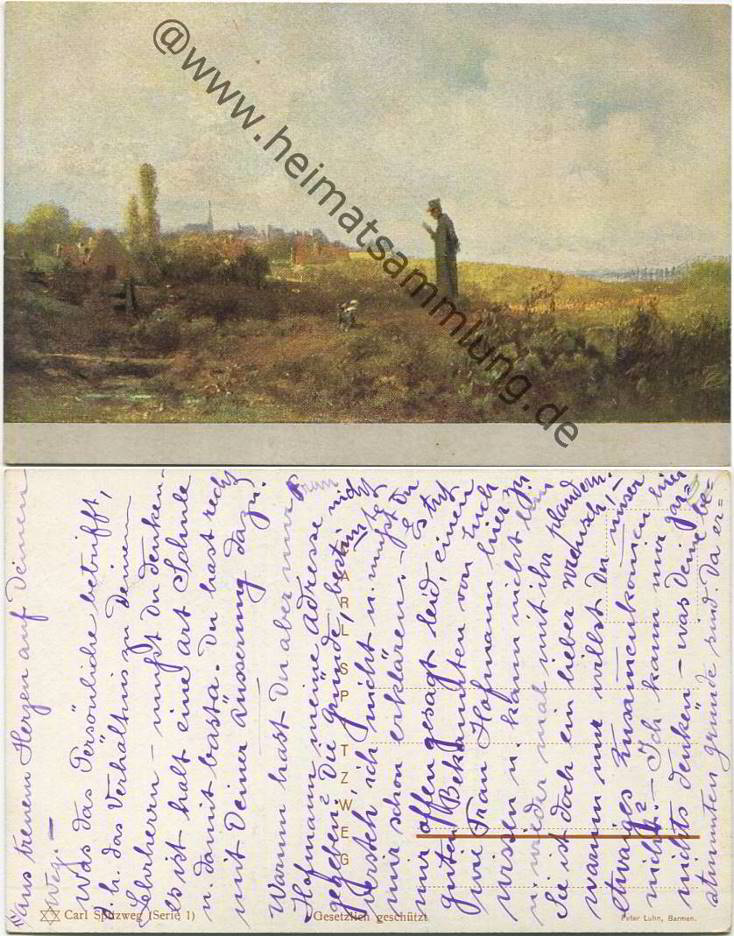 @www.heimatsammlung.de
aus treuem Herzen auf Deinen
Weg. —
Was das Persönliche betrifft,
d. h. das Verhältnis zu Deinem
Lehrherrn – mußt Du denken –
es ist halt eine art Schule
u. damit basta. Du hast recht
mit Deiner Äusserung dazu.
Warum hast Du aber nur Frau
Hofmann meine Adresse nicht
gegeben? Die Gründe, bestimmt
versteh' ich nicht u. mußt Du
mir schon erklären. – Es tut
mir offengesagt leid, einen
guten Bekannten von Euch
wie Frau Hofmann hier zu
wissen u. kann nicht
u. wieder mal mit ihr plaudern.
Sie ist doch ein lieber Mensch, –
warum nur willst Du unser
etwaiges Zusammenkommen hier
nicht? – Ich kann mir gar
nichts denken – was Deine be-
stimmten Gründe sind. Da er-
CARL SPITZWEG
Carl Spitzweg (Serie 1)
Gesetzlich geschützt
Peter Luhn, Barmen.